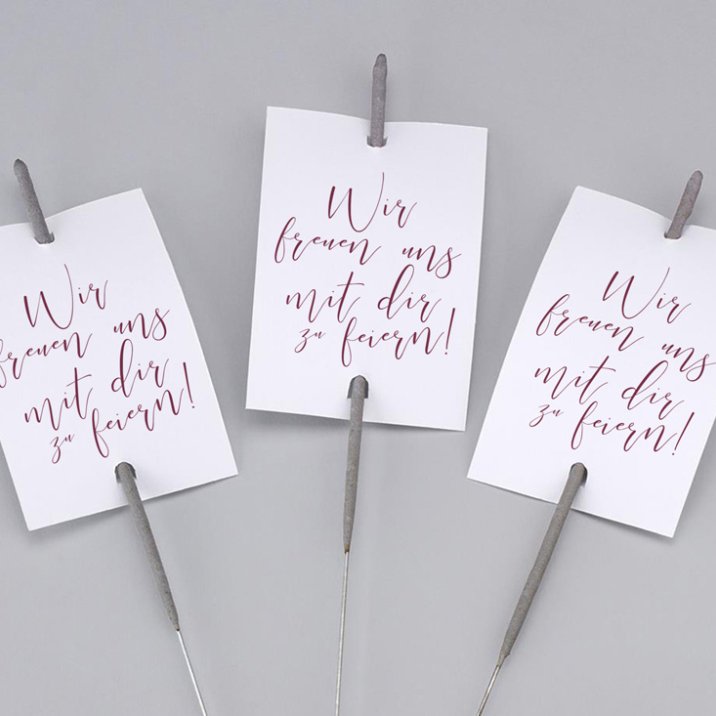 Wir
freuen uns
mit dir
zu feiern!
Wir
freuen uns
mit dir
zu feiern!
Wir
freuen uns
mit dir
zu feiern!